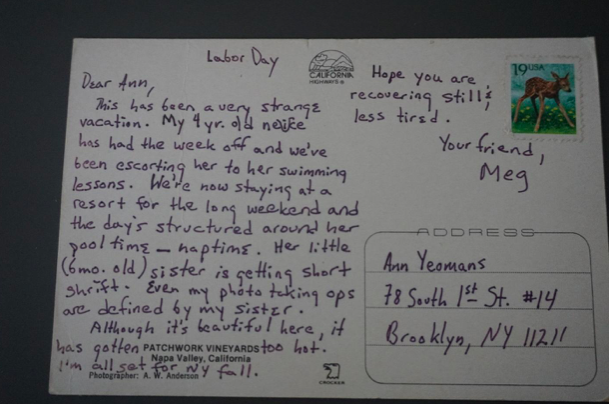 Labor Day
Dear Ann,
This has been a very strange
vacation. My 4 yr. old neike
has had the week off and we've
been escorting her to her swimming
lessons. We're now staying at a
resort for the long weekend and
the day's structured around her
pool time — naptime. Her little
(6mo. old) sister is getting short
shrift. Even my photo taking ops
are defined by my sister.
Although it's beautiful here, it
has gotten too hot.
I'm all set for NY fall.
PATCHWORK VINEYARDS
Napa Valley, California
Photographer: A. W. Anderson
CALIFORNIA
HIGHWAYS
CROCKER
Hope you are
recovering still &
less tired.
Your friend,
Meg
19 USA
ADDRESS
Ann Yeomans
78 South 1st St. #14
Brooklyn, NY 11211